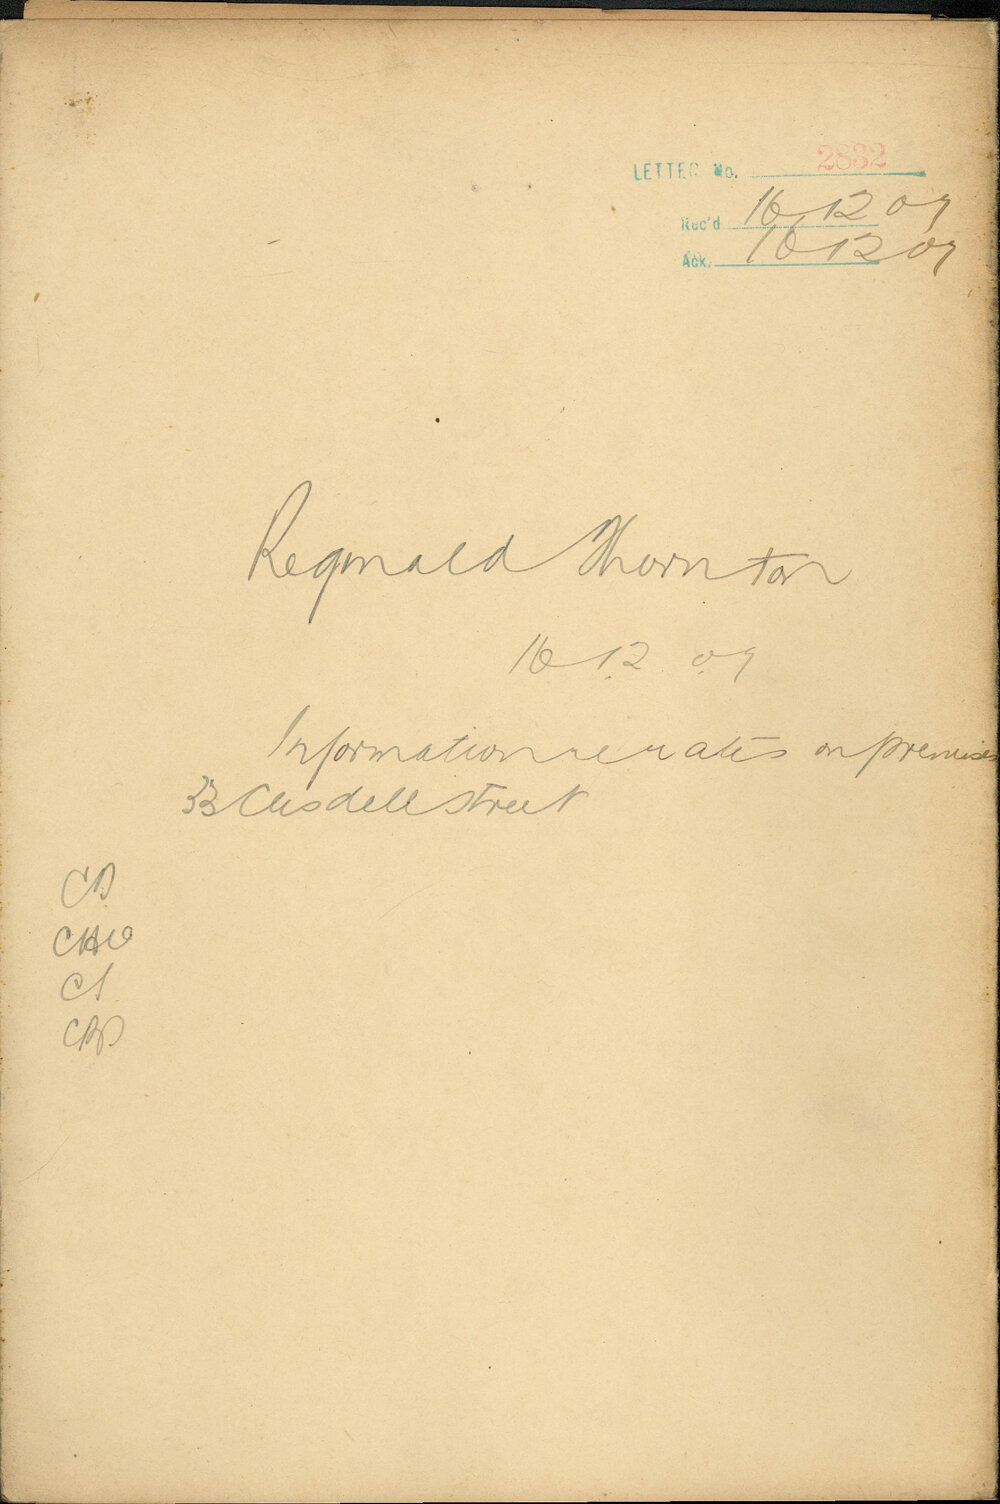 LETTER No. 2832
Rec'd 16 12 07
Ack. 16 12 07
Reginald Thornton
16. 12. 07
Information re rates on premises
33 Clisdell Street